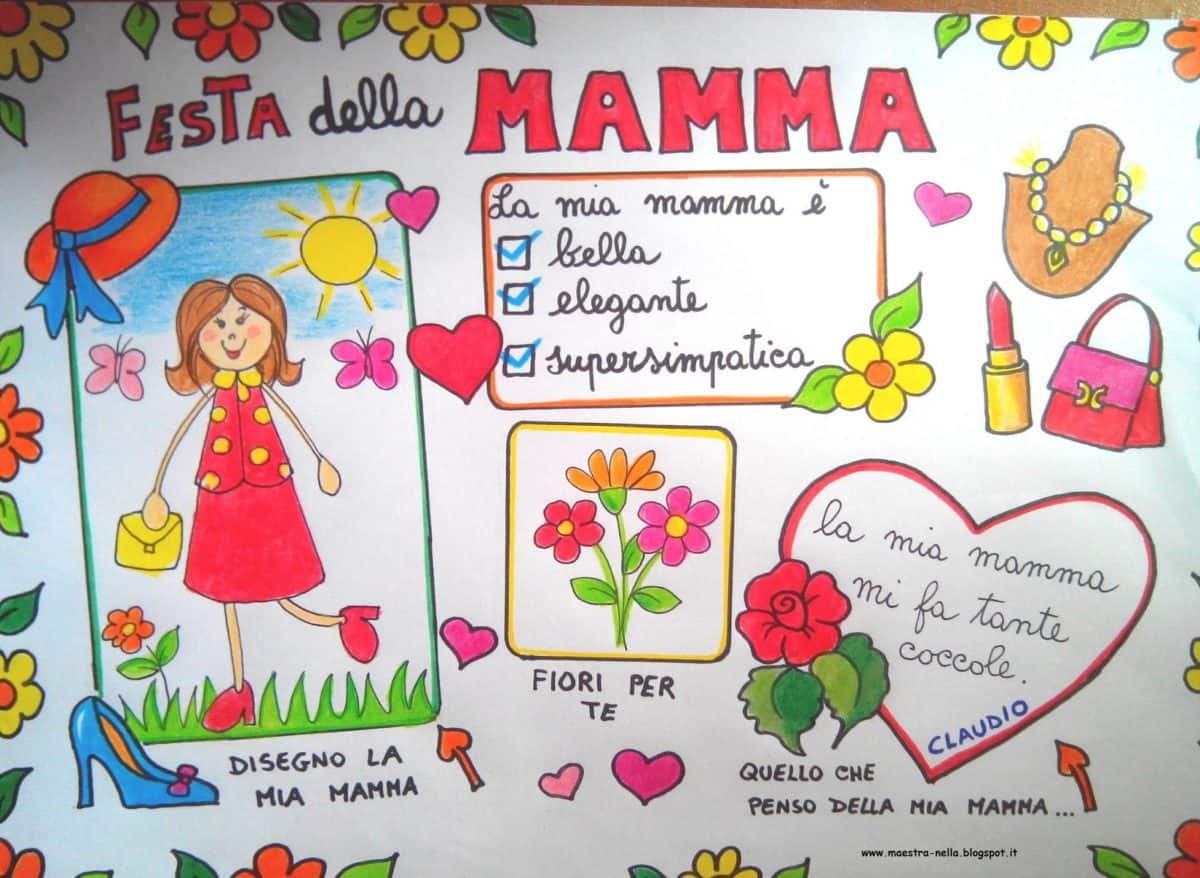 FESTA della MAMMA
La mia mamma è
bella
elegante
supersimpatica
la mia mamma
mi fa tante
coccole.
CLAUDIO
FIORI PER
TE
DISEGNO LA
MIA MAMMA
QUELLO CHE
PENSO DELLA MIA MAMMA...
www.maestra-nella.blogspot.it